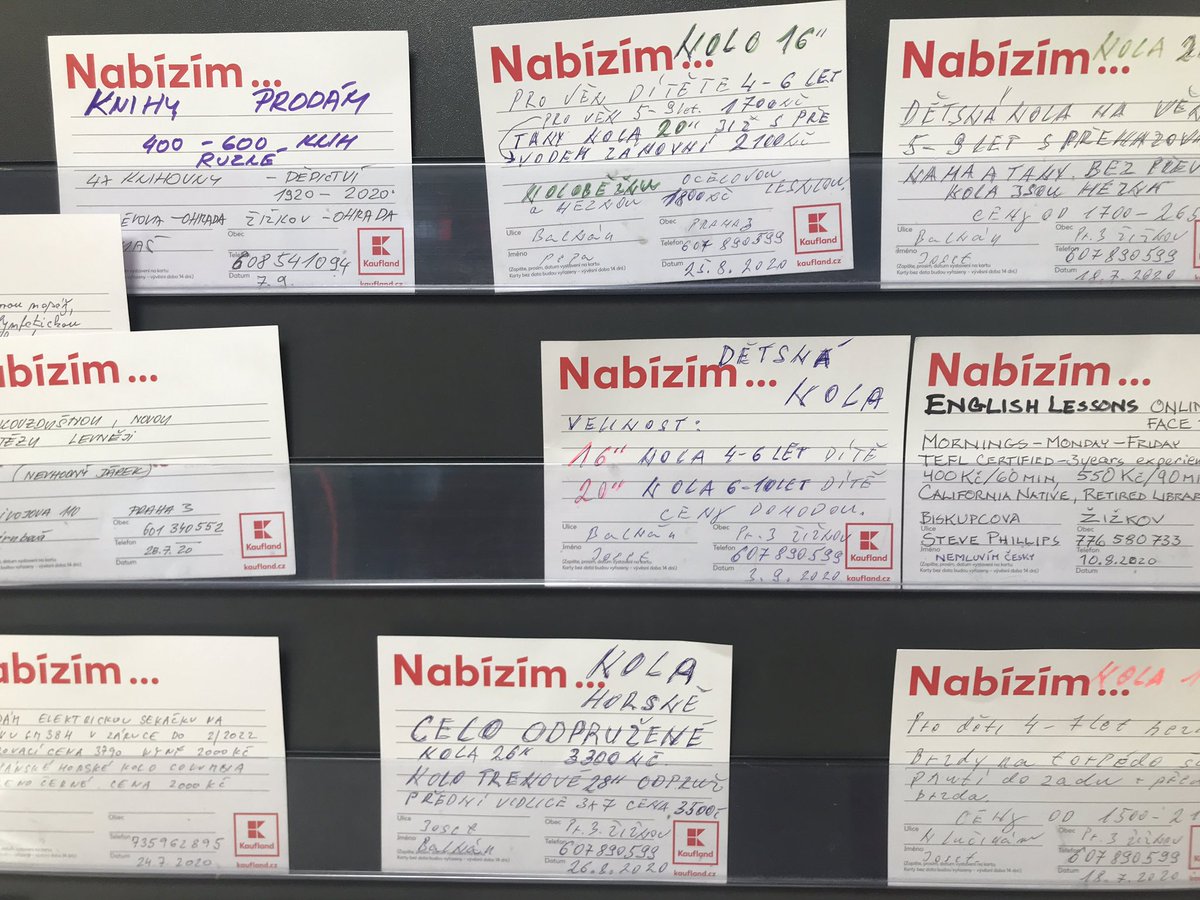 Nabízím...
KNIHY PRODÁM
400 - 600 KNIH
RUZNÉ
47 KNIHOVNY - DĚDICTVÍ
1920 - 2020
EVOVA - OHRADA ŽIŽKOV - OHRADA
Obec
Telefon 608541094
Datum 7.9.
Kaufland
kaufland.cz
Nabízím... KOLO 16"
PRO VĚK DÍTĚTE 4-6 LET
PRO VĚK 5-9 let. 1700KČ
TÁNY KOLA 20" 3IŽ S PŘE
VODEM ZÁNOVNÍ 2100KČ
KOLOBĚŽKU OCELOVOU
A HÉZKOU 1800KČ
Ulice Balkán Obec PRAHA 3
Jméno Pepa Telefon 607 890599
(Zapište, prosím, datum vystavení na kartu
Karty bez data budou vyřazeny - vyvěšení doba 14 dní.)
Datum 25.8.2020
Kaufland
kaufland.cz
Nabízím... KOLA 2
DĚTSKÁ KOLA NA VĚ
5-9 LET S PŘEHAZOV
BEZ PŘEV
KOLA 3SOU HÉZKÁ
CENY OD 1700-26
Ulice Balkán Obec Pr. 3 ŽIŽKOV
Jméno Josef Telefon 607890599
Datum 18.7.2020
nou
sympatickou
bízím...
, NOVOU
LEVNĚJI
(NEVHODNÝ DÁREK)
110 PRAHA 3
Obec
601 340552
Telefon
28.7.20
Datum
Kaufland
kaufland.cz
Nabízím... DĚTSKÁ
KOLA
VELIKOST:
16" KOLA 4-6 LET DÍTĚ
20" KOLA 6-10LET DÍTĚ
CENY DOHODOU.
Ulice Balkán Obec Pr. 3 ŽIŽKOV
Jméno Josef Telefon 607890599
(Zapište, prosím, datum vystavení na kartu
Karty bez data budou vyřazeny - vyvěšení doba 14 dní.)
Datum 3.9.2020
Kaufland
kaufland.cz
Nabízím...
ENGLISH LESSONS ONLIN
FACE
MORNINGS - MONDAY - FRIDAY
TEFL CERTIFIED - 3 years experien
400 Kč/60 MIN, 550 Kč/90 mi
CALIFORNIA NATIVE, RETIRED LIBRA
BISKUPCOVA ŽIŽKOV
Ulice Obec
STEVE PHILLIPS 776 580 733
Jméno Telefon
NEMLUVÍM ČESKY 10.8.2020
Datum
bízím...
DÁM ELEKTRICKOU SEKAČKU NA
VU GM384 V ZÁRUCE DO 2/2022
OVACÍ CENA 3790 NYNÍ 2000 KČ
PÁNSKÉ HORSKÉ KOLO COLUMBIA
ENO ČERNÉ. CENA 2000 KČ
Obec
Telefon 735962895
Datum 24.7.2020
Kaufland
kaufland.cz
Nabízím... KOLA
HORSKÉ
CELO ODPRUŽENÉ
KOLA 26" 3300 KČ.
KOLO TREKOVÉ 28" ODPRUŽ
PŘEDNÍ VIDLICE 3x7 CENA 3500Č
Ulice Josef Obec Pr. 3. ŽIŽKOV
Jméno Balkán Telefon 607890599
(Zapište, prosím, datum vystavení na kartu
Karty bez data budou vyřazeny - vyvěšení doba 14 dní.)
Datum 26.8.2020
Kaufland
kaufland.cz
Nabízím... KOLA 1
Pro děti 4-7 let
Brzdy na torpédo
do zadu + před
brzda.
CENY OD 1500-21
Ulice Obec Pr. 3 ŽIŽKOV
Jméno Josef Telefon 607890599
Datum 18.7.2020